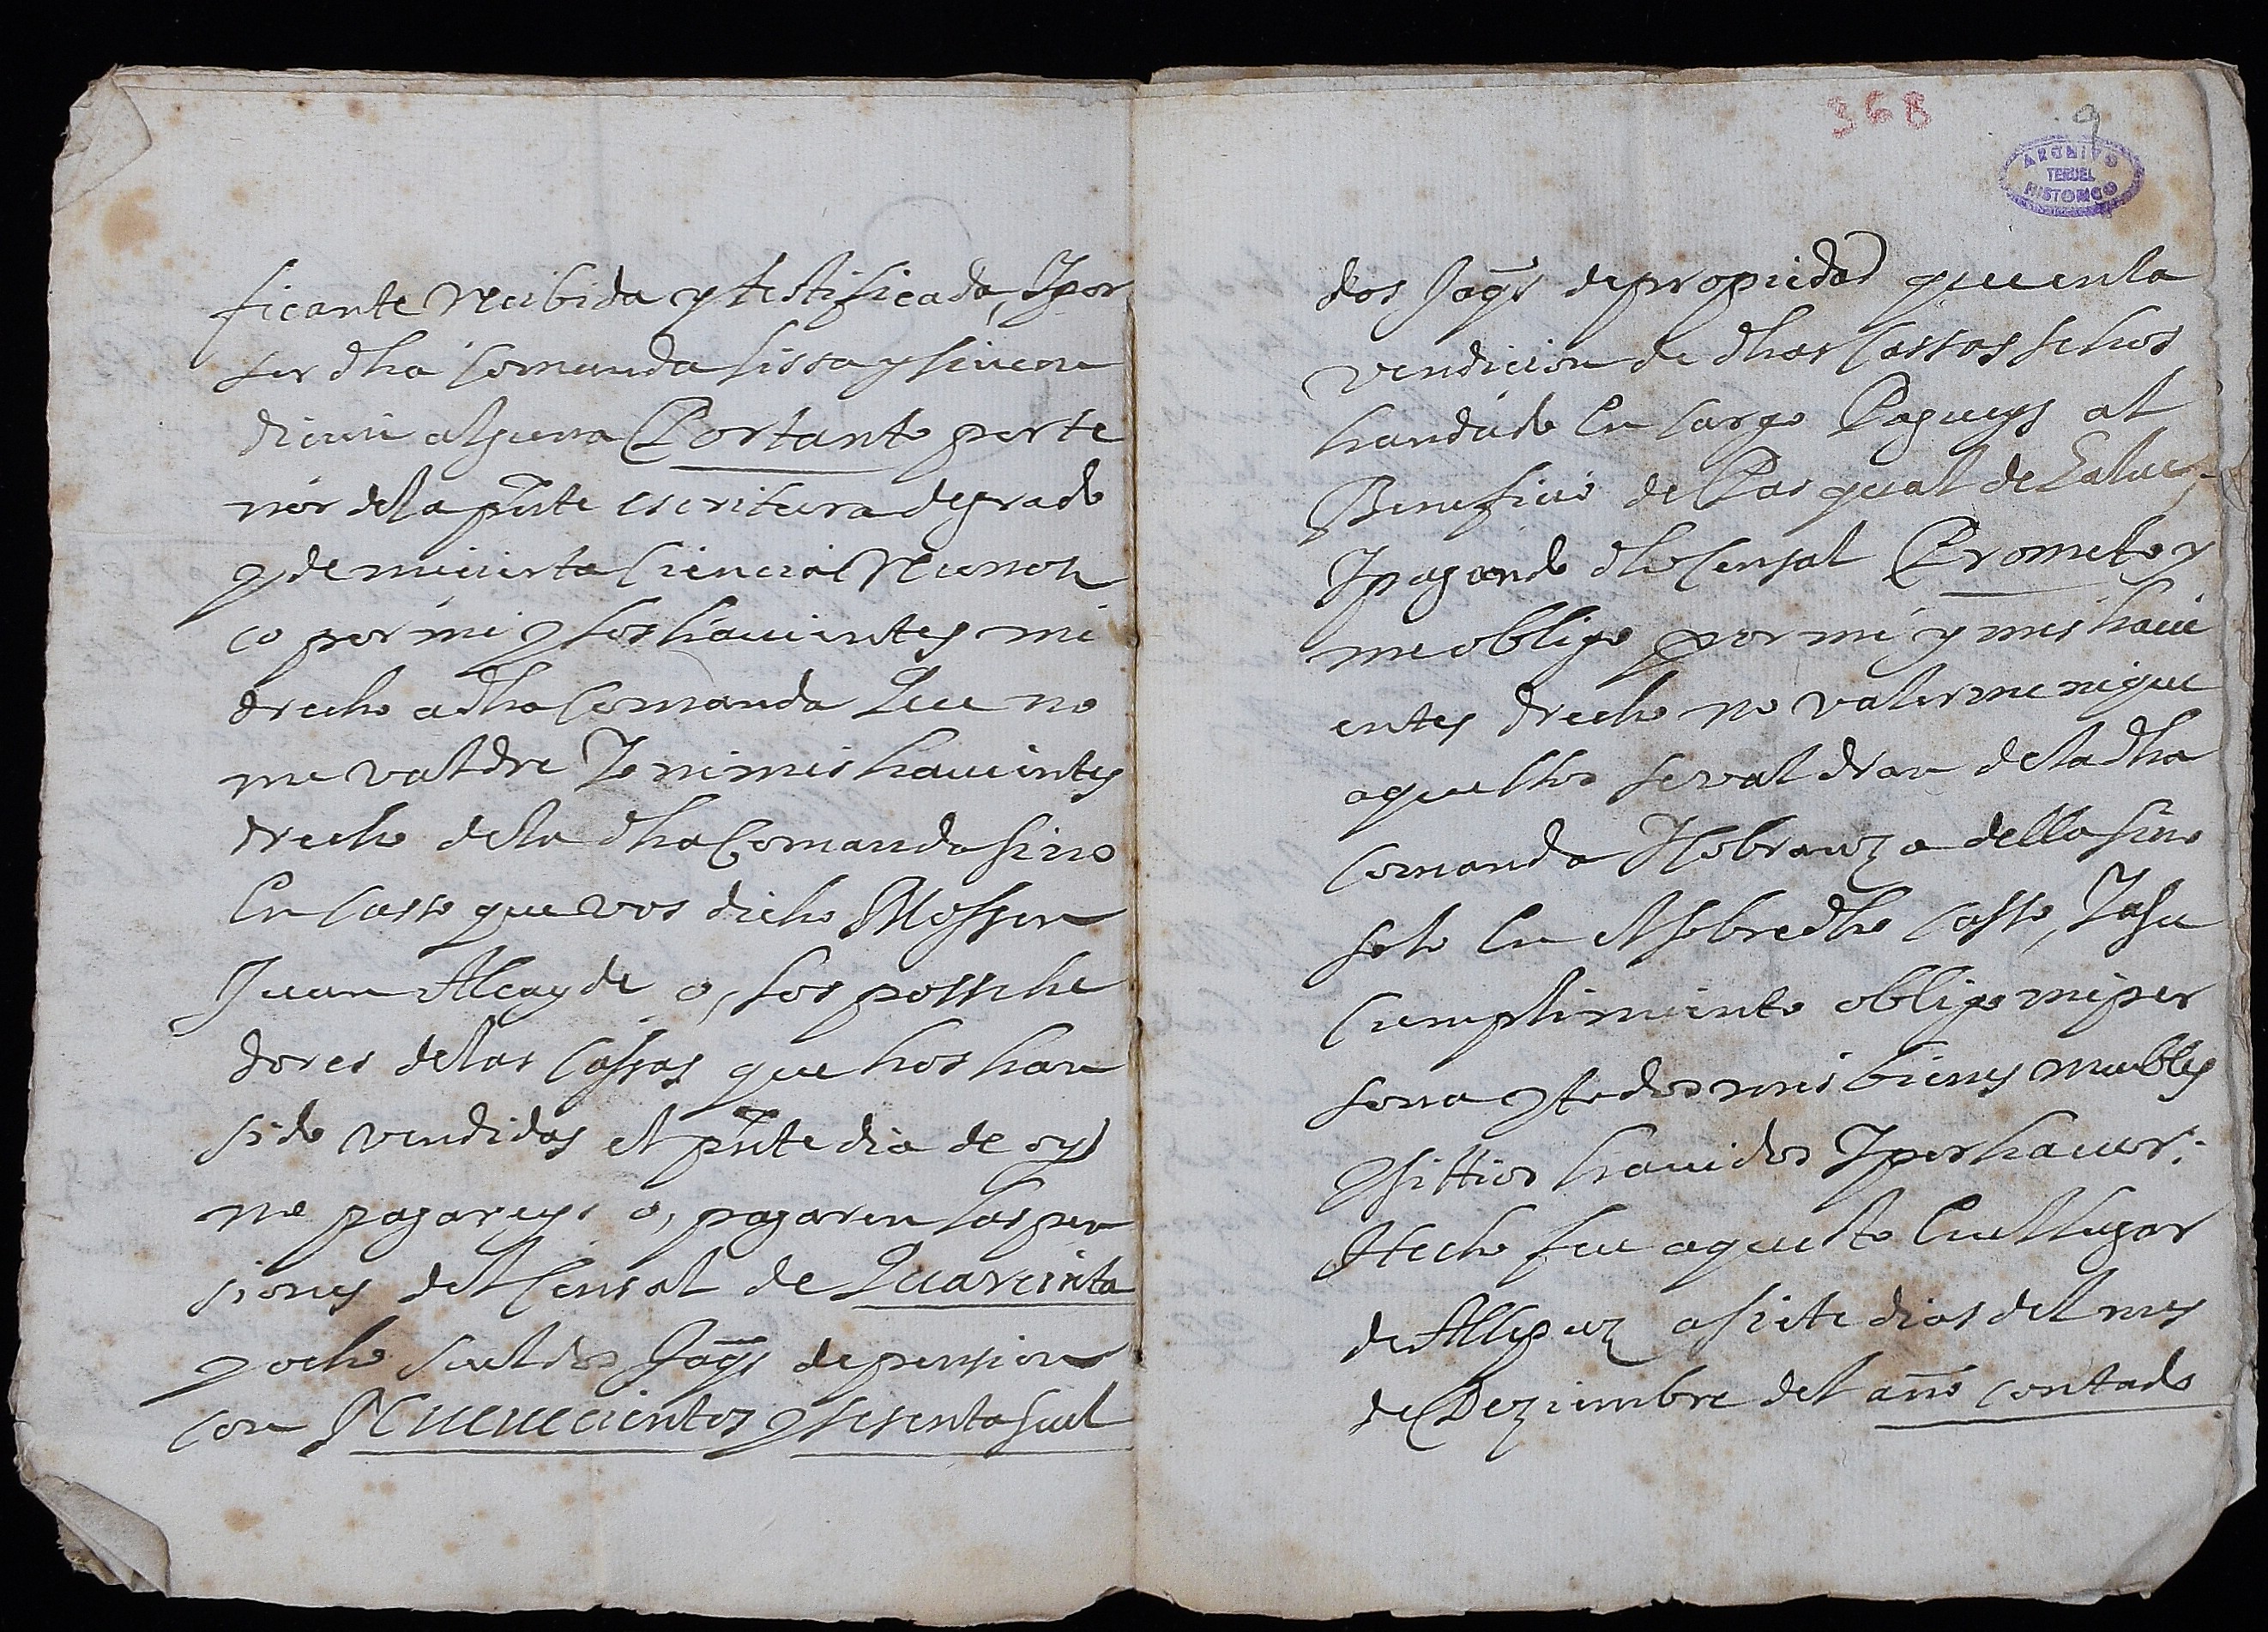 ficante recibida y testificada, Y por
ser dha comanda lissa y sin con
dicion alguna Portanto por te
nor dela pnte escritura de grado
y de mi cierta ciencia Renon
co por mi y los hauientes mi
drecho a dha comanda Que no
me valdre Yo ni mis hauientes
drecho dela dha Comanda sino
En casso que vos dicho Mossen
Juan Alcayde o, los posehe
dores delas cassas que hos han
sido vendidas el pnte dia de oy
no pagareys o, pagaren las pen
siones del censal de Quareinta
y ocho sueldos Jaqs de pension
con Nuevecientos y sesenta suel
368
9
ARCHIVO
TERUEL
HISTORICO
dos Jaqs de propiedad que en la
vendicion de dhas Cassas se hos
han dado En cargo Pagueys al
Beneficio de Pasqual de
Y pagando dho censal Prometo y
me obligo por mi y mis haui
entes drecho no valerme ni que
aquellos se valdran dela dha
comanda Ni obrar della sino
solo En el sobredho casso, Y a su
cumplimiento obligo mi per
sona y todos mis bienes muebles
y sittios hauidos Y por hauer.
Hecho fue aquesto En el lugar
de Allepuz a siete dias del mes
de Deziembre del año contado